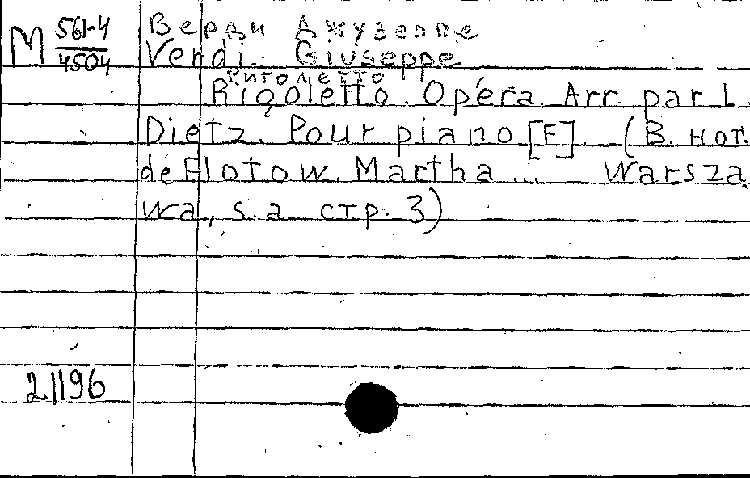 M 561-4 Верди Джузеппе
4504 Verdi Giuseppe
Риголетто
Rigoletto. Opéra Arr par L
Dietz. Pour piano [F] (В. нот.
de Flotow. Martha... Warsza
wa, s. a стр. 3)
21196